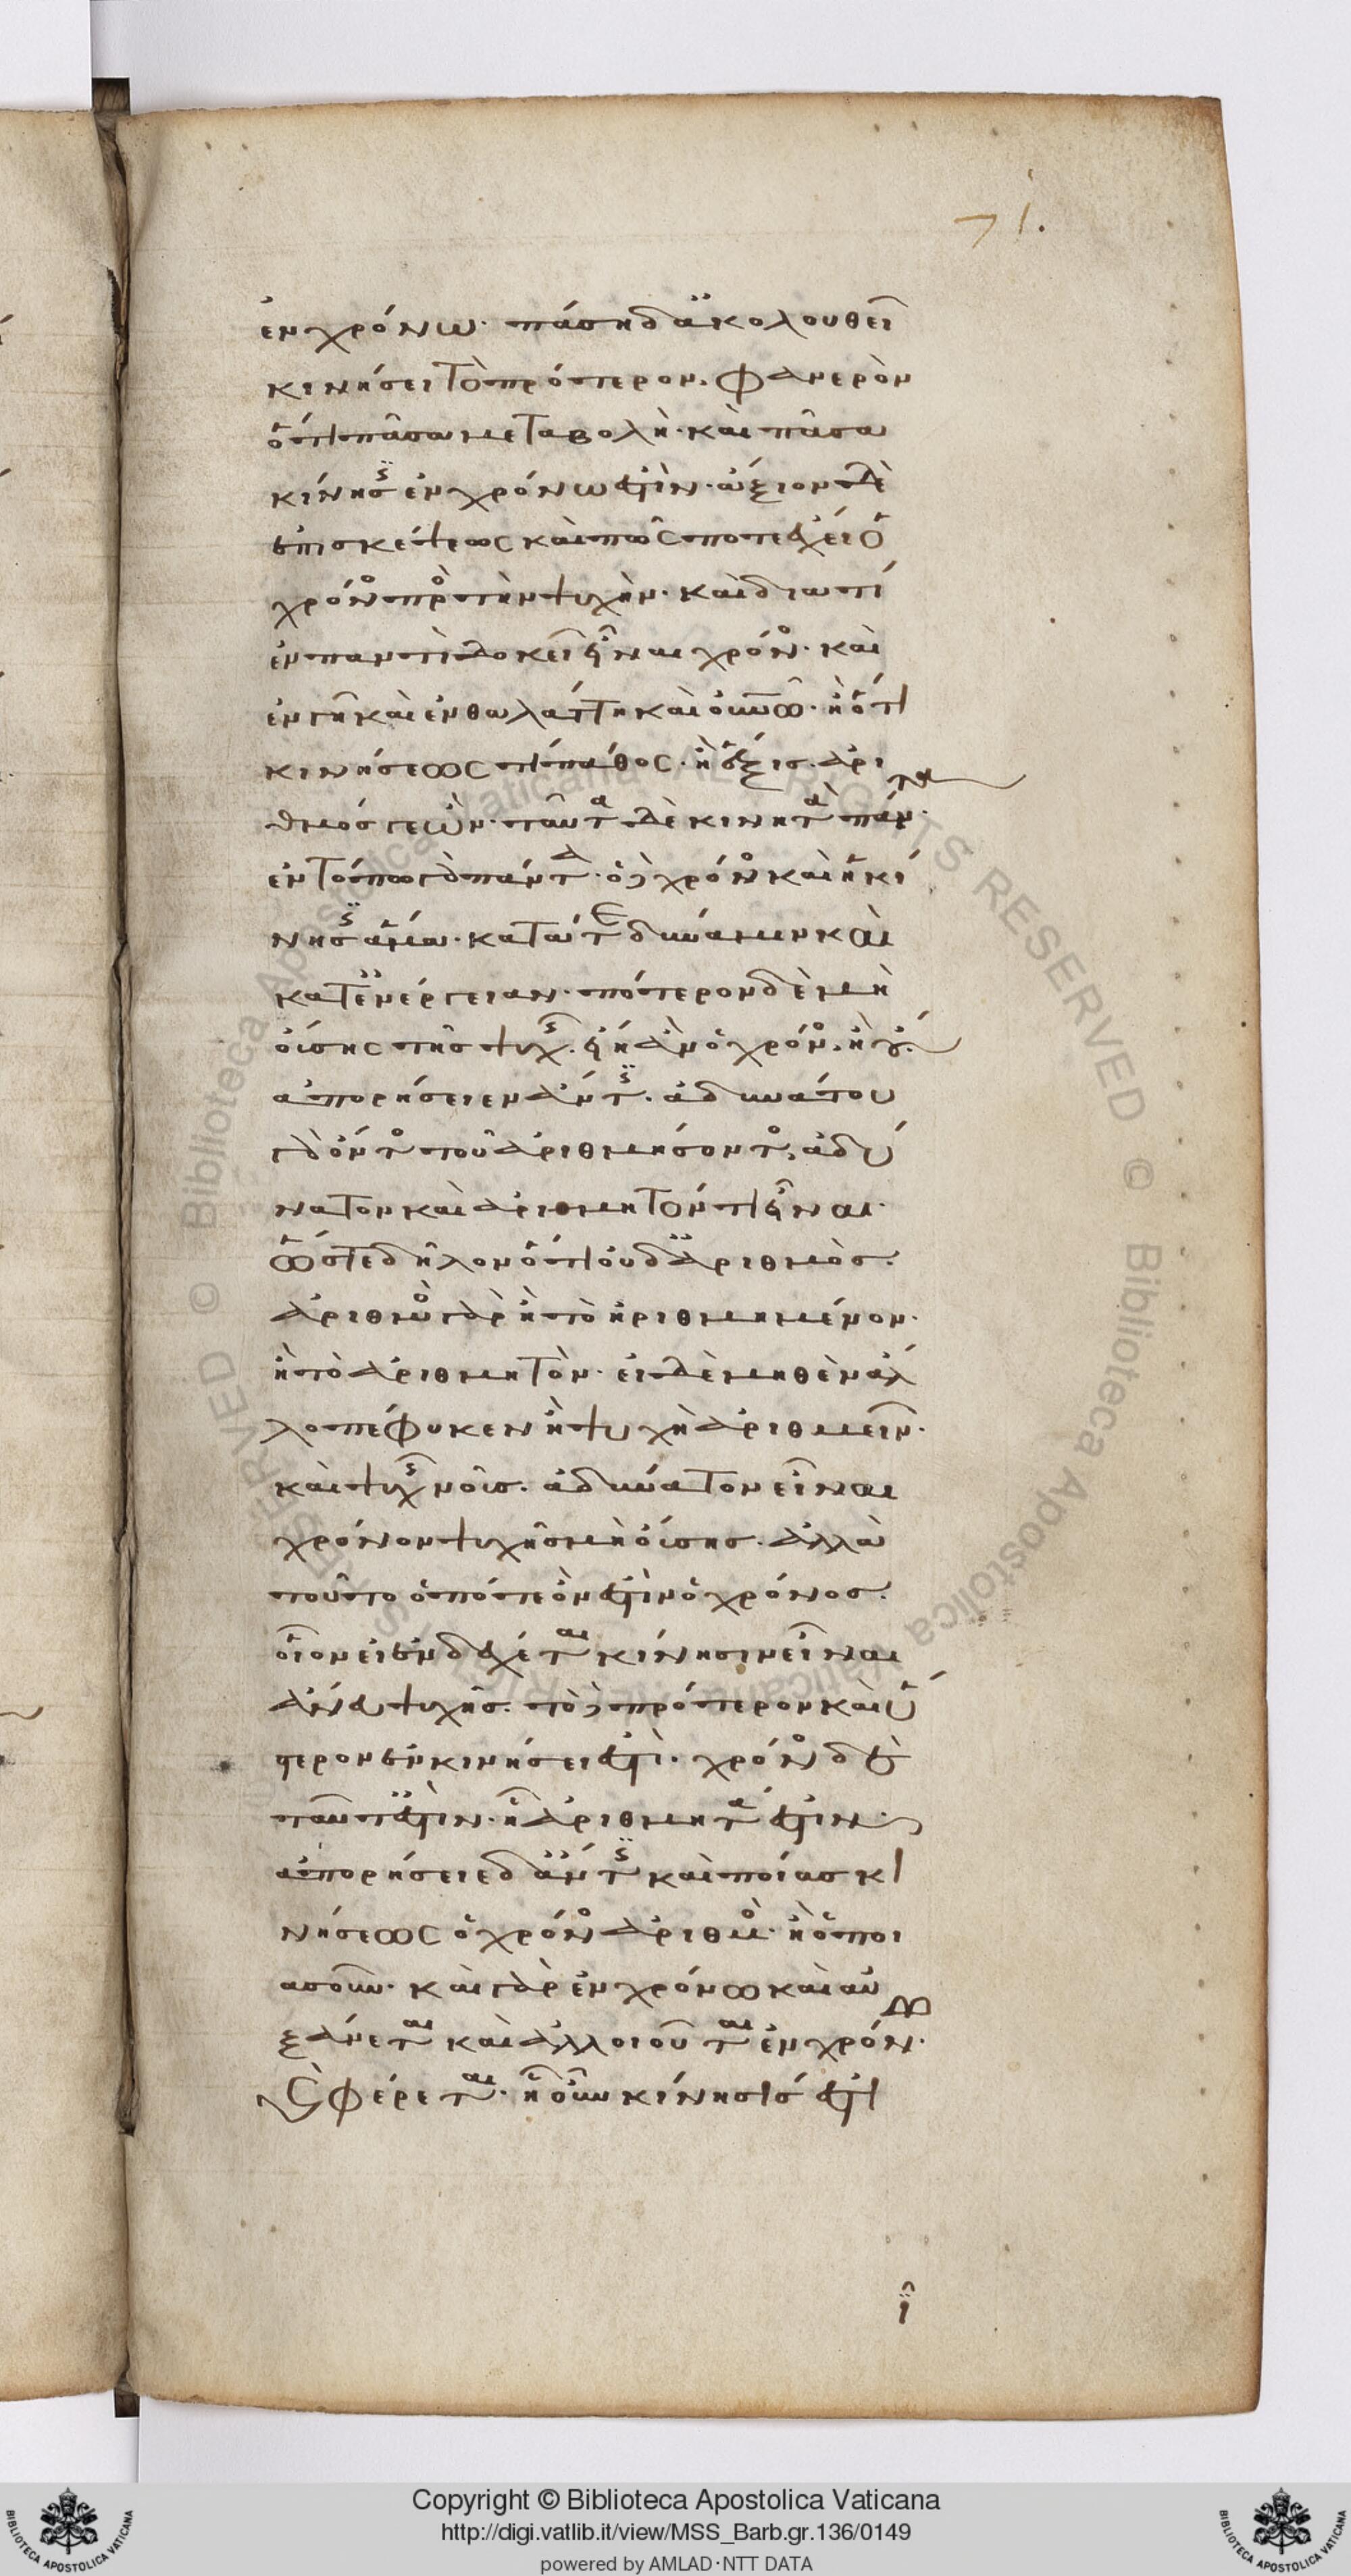 71.
ἐν χρόνω· πάση δ' ἀκολουθεῖ
κινήσει τὸ πρότερον. φανερὸν
ὅτι πᾶσα μεταβολὴ· καὶ πᾶσα
κίνησις ἐν χρόνω ἐστίν· ἄξιον δὲ
ἐπισκέψεως καὶ πῶς ποτε ἔχει ὁ
χρόνος πρὸς τὴν ψυχήν· καὶ διατί
ἐν παντὶ δοκεῖ εἶναι χρόνος· καὶ
ἐν γῆ καὶ ἐν θαλάττη καὶ οὐνῶ· ἢ ὅτι
κινήσεως τὶ πάθος· ἢ ἕξις. ἀρι
θμός γε ὤν· ταῦτα δὲ κινητὰ πάντα·
ἐν τόπω γὰρ πάντα· ὁ δὲ χρόνος καὶ ἡ κί
νησις ἅμα· κατά τε δύναμιν καὶ
κατ' ἐνέργειαν· πότερον δὲ μὴ
οὔσης τῆς ψυχῆς· εἴη ἂν ὁ χρόνος. ἢ οὔ.
ἀπορήσειεν ἄν τις. ἀδυνάτου
γὰρ ὄντος τοῦ ἀριθμήσοντος, ἀδύ
νατον καὶ ἀριθμητόν τι εἶναι·
ὥστε δῆλον ὅτι οὐδ' ἀριθμός.
ἀριθμὸς γὰρ ἢ τὸ ἠριθμημένον·
ἢ τὸ ἀριθμητόν· εἰ δὲ μηθὲν ἄλ
λο πέφυκεν ἢ ψυχὴ ἀριθμεῖν·
καὶ ψυχῆς νοῦς. ἀδύνατον εἶναι
χρόνον ψυχῆς μὴ οὔσης. ἀλλὰ
τοῦτο ὅ ποτε ὄν ἐστιν ὁ χρόνος.
οἷον εἰ ἐνδέχεται κίνησιν εἶναι
ἄνευ ψυχῆς. τὸ δὲ πρότερον καὶ ὕ
στερον ἐν κινήσει ἐστὶ· χρόνος δὲ
ταῦτ' ἐστὶν· ἧ ἀριθμητά ἐστιν·
ἀπορήσειε δ' ἄν τις καὶ ποίας κι
νήσεως ὁ χρόνος ἀριθμὸς· ἢ ὁποι
ασοῦν· καὶ γὰρ ἐν χρόνω καὶ αὐ
ξάνεται καὶ ἀλλοιοῦται ἐν χρόνω·
καὶ φέρεται· ἧ οὖν κίνησίς ἐστι
ϊ
Copyright © Biblioteca Apostolica Vaticana
http://digi.vatlib.it/view/MSS_Barb.gr.136/0149
powered by AMLAD·NTT DATA